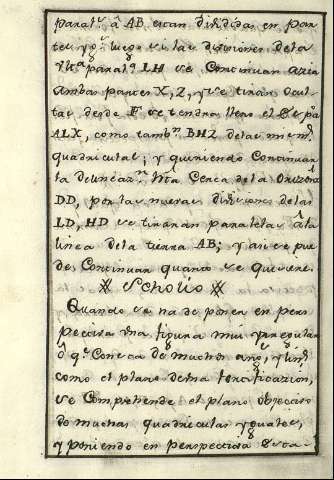 paral.s â AB estan divididas en par
tes y q.e luego si las divisiones dela
Vlt.a paral.a LH se Continuan azia
ambas partes X, Z, y se tiran ocul
tas desde F se tendra lleno el Esp.o
ALX, como tamb.n BHZ delas mism.s
quadriculas; y quiriendo Continuar
la delinear.n hta Cerca dela Orizonta
DD, por las nuevas divisiones delas
LD, HD se tiraran paralelas âla
linea dela tierra AB; y asi se pue
de Continuar quanto se quisiere.
Scholio
Quando se ha de poner en pers
pectiva vna figura mui yrregular
ô q.e Conste de muchos ang.s y lin.s
como el plano de vna fortificazion,
se Comprehende el plano objectivo
de muchas quadriculas yguales,
y poniendo en perspectiva Esta-